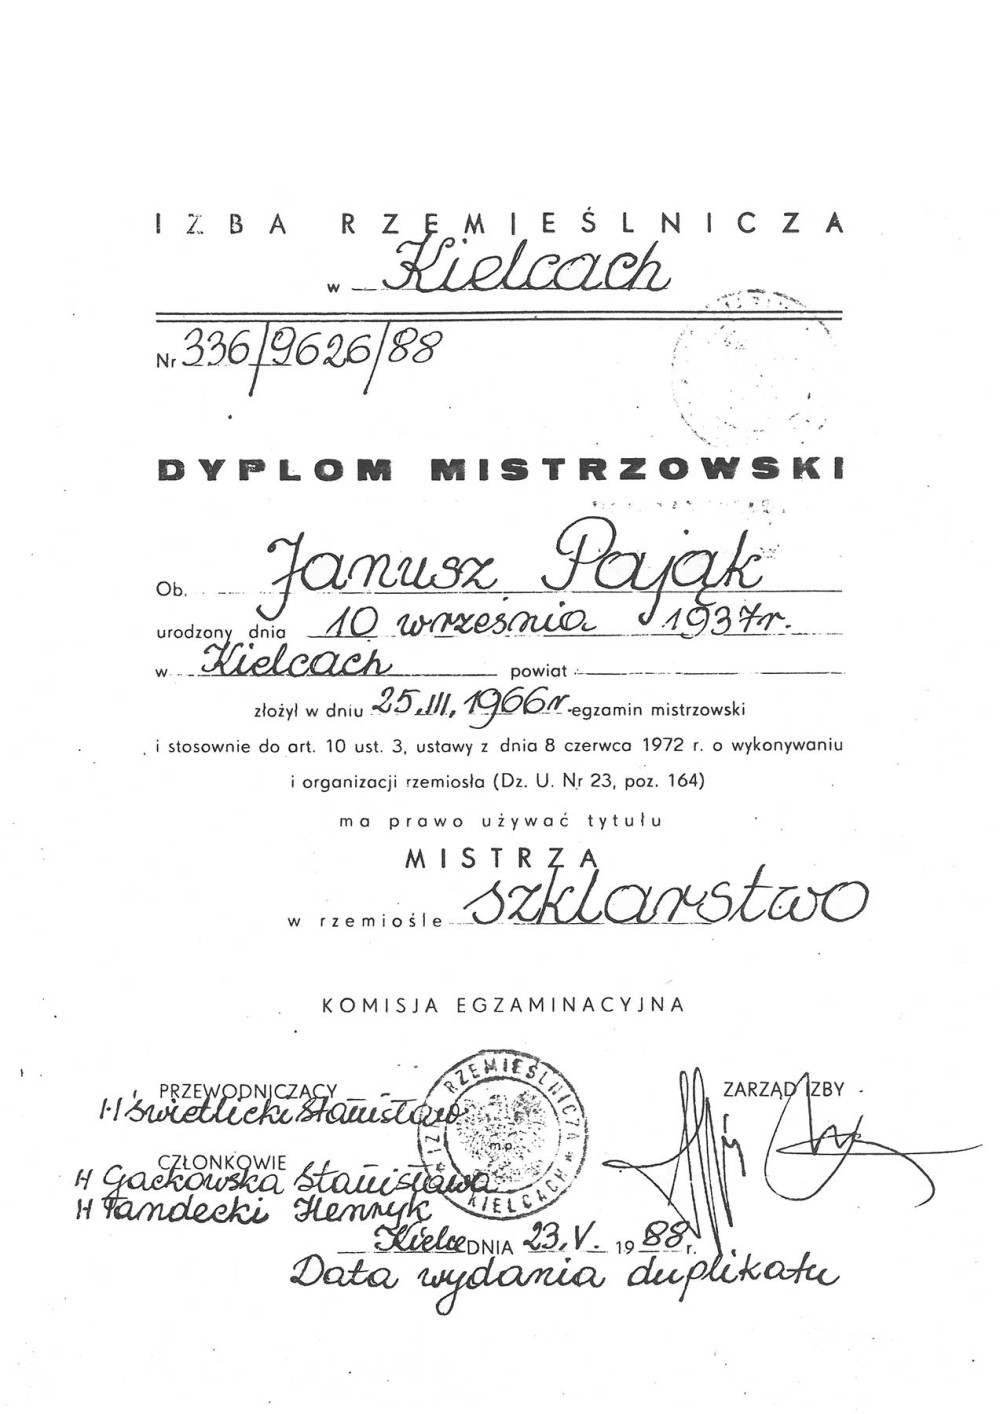 IZBA RZEMIEŚLNICZA
w Kielcach
Nr 336/9626/88
DYPLOM MISTRZOWSKI
Ob. Janusz Pająk
urodzony dnia 10 września 1937r.
w Kielcach powiat
złożył w dniu 25.III.1966r. egzamin mistrzowski
i stosownie do art. 10 ust. 3, ustawy z dnia 8 czerwca 1972 r. o wykonywaniu
i organizacji rzemiosła (Dz. U. Nr 23, poz. 164)
ma prawo używać tytułu
MISTRZA
w rzemiośle szklarstwo
KOMISJA EGZAMINACYJNA
PRZEWODNICZĄCY
H Świetlicki Stanisław
ZARZĄD IZBY
IZBA RZEMIEŚLNICZA * KIELCACH *
m.p.
CZŁONKOWIE
H Gackowska Stanisława
H Tandecki Henryk
Kielce DNIA 23.V. 1988 r.
Data wydania duplikatu